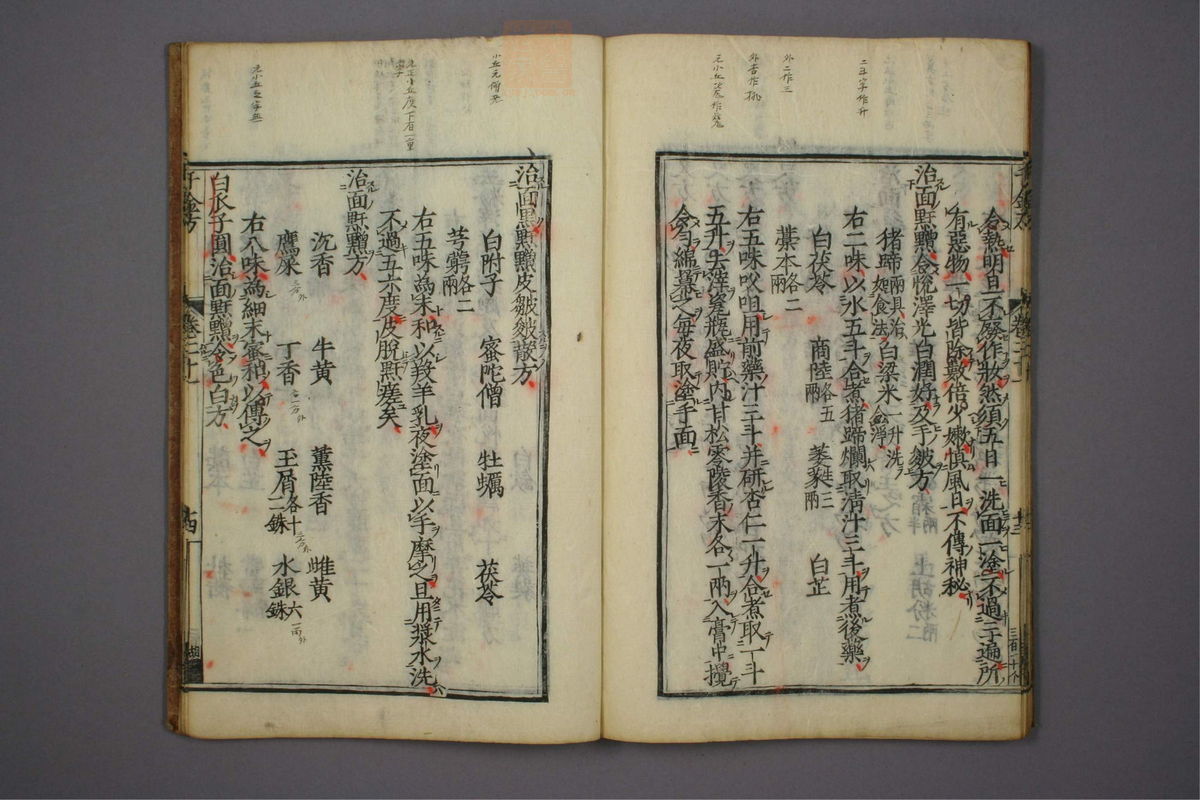 令熱明旦不廢作粧然須五日一洗面一塗不過三遍所
有惡物一切皆除數倍少嫩慎風日不傳神秘
治面䵟䵳令悅澤光白潤好及手皴方
猪蹄兩具治如食法 白梁米一升洗令淨
右二味以水五斗合煮猪蹄爛取清汁三斗用煮後藥
白茯苓 商陸各五兩 萎蕤三兩 白芷
藁本各二兩
右五味㕮咀用前藥汁三斗并研杏仁一升合煮取一斗
五升去滓瓷瓶盛貯內甘松零陵香末各一兩入膏中攪
令勻綿羃之每夜取塗手面
治面黑䵟䵳皮皺皴散方
白附子 蜜陀僧 牡蠣 茯苓
芎藭各二兩
右五味為末和以羖羊乳夜塗面以手摩之旦用漿水洗
不過五六度皮脫䵟瘥矣
治面䵟䵳方
沉香 牛黃 薰陸香 雌黃
鷹屎 丁香 玉屑各十二銖 水銀六銖
右八味為細末蜜和以傅之
白瓜子圓治面䵟䵳令色白方